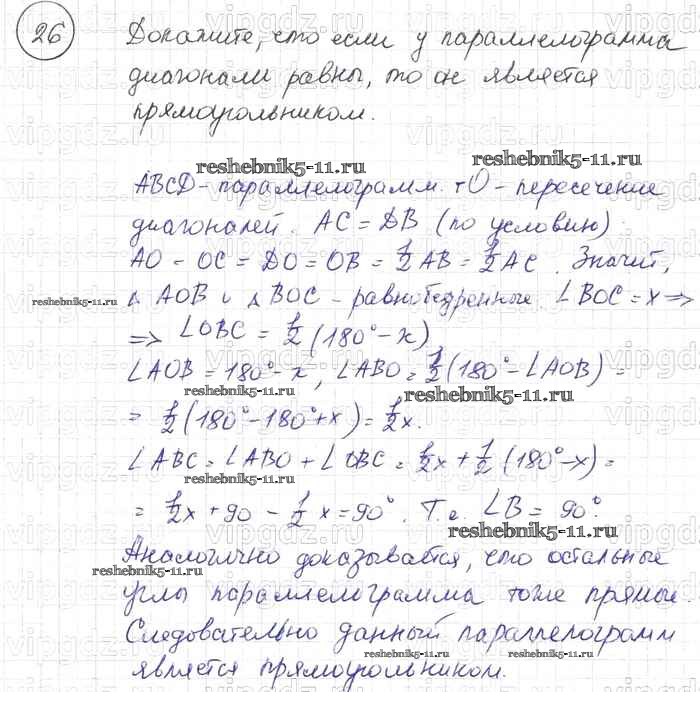 26
Докажите, что если у параллелограмма
диагонали равны, то он является
прямоугольником.
reshebnik5-11.ru
reshebnik5-11.ru
ABCD - параллелограмм. т O - пересечение
диагоналей. AC = DB (по условию).
AO = OC = DO = OB = 1/2 AB = 1/2 AC. Значит,
reshebnik5-11.ru
Δ AOB и Δ BOC - равнобедренные. ∠BOC = x ⇒
⇒ ∠OBC = 1/2 (180° - x)
∠AOB = 180° - x, ∠ABO = 1/2 (180° - ∠AOB) =
reshebnik5-11.ru
reshebnik5-11.ru
= 1/2 (180° - 180° + x) = 1/2 x.
∠ABC = ∠ABO + ∠OBC = 1/2 x + 1/2 (180° - x) =
reshebnik5-11.ru
= 1/2 x + 90 - 1/2 x = 90°. Т.е. ∠B = 90°.
reshebnik5-11.ru
Аналогично доказывается, что остальные
reshebnik5-11.ru
углы параллелограмма тоже прямые.
Следовательно данный параллелограмм
reshebnik5-11.ru
reshebnik5-11.ru
является прямоугольником.